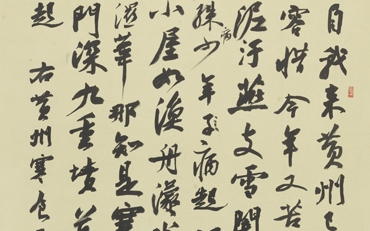 自我来黄州已
容惜今年又苦
泥汙燕支雪闇
殊少年子病起
小屋如漁舟濛水
濕葦那知是寒
門深九重墳墓
起 右黄州寒食